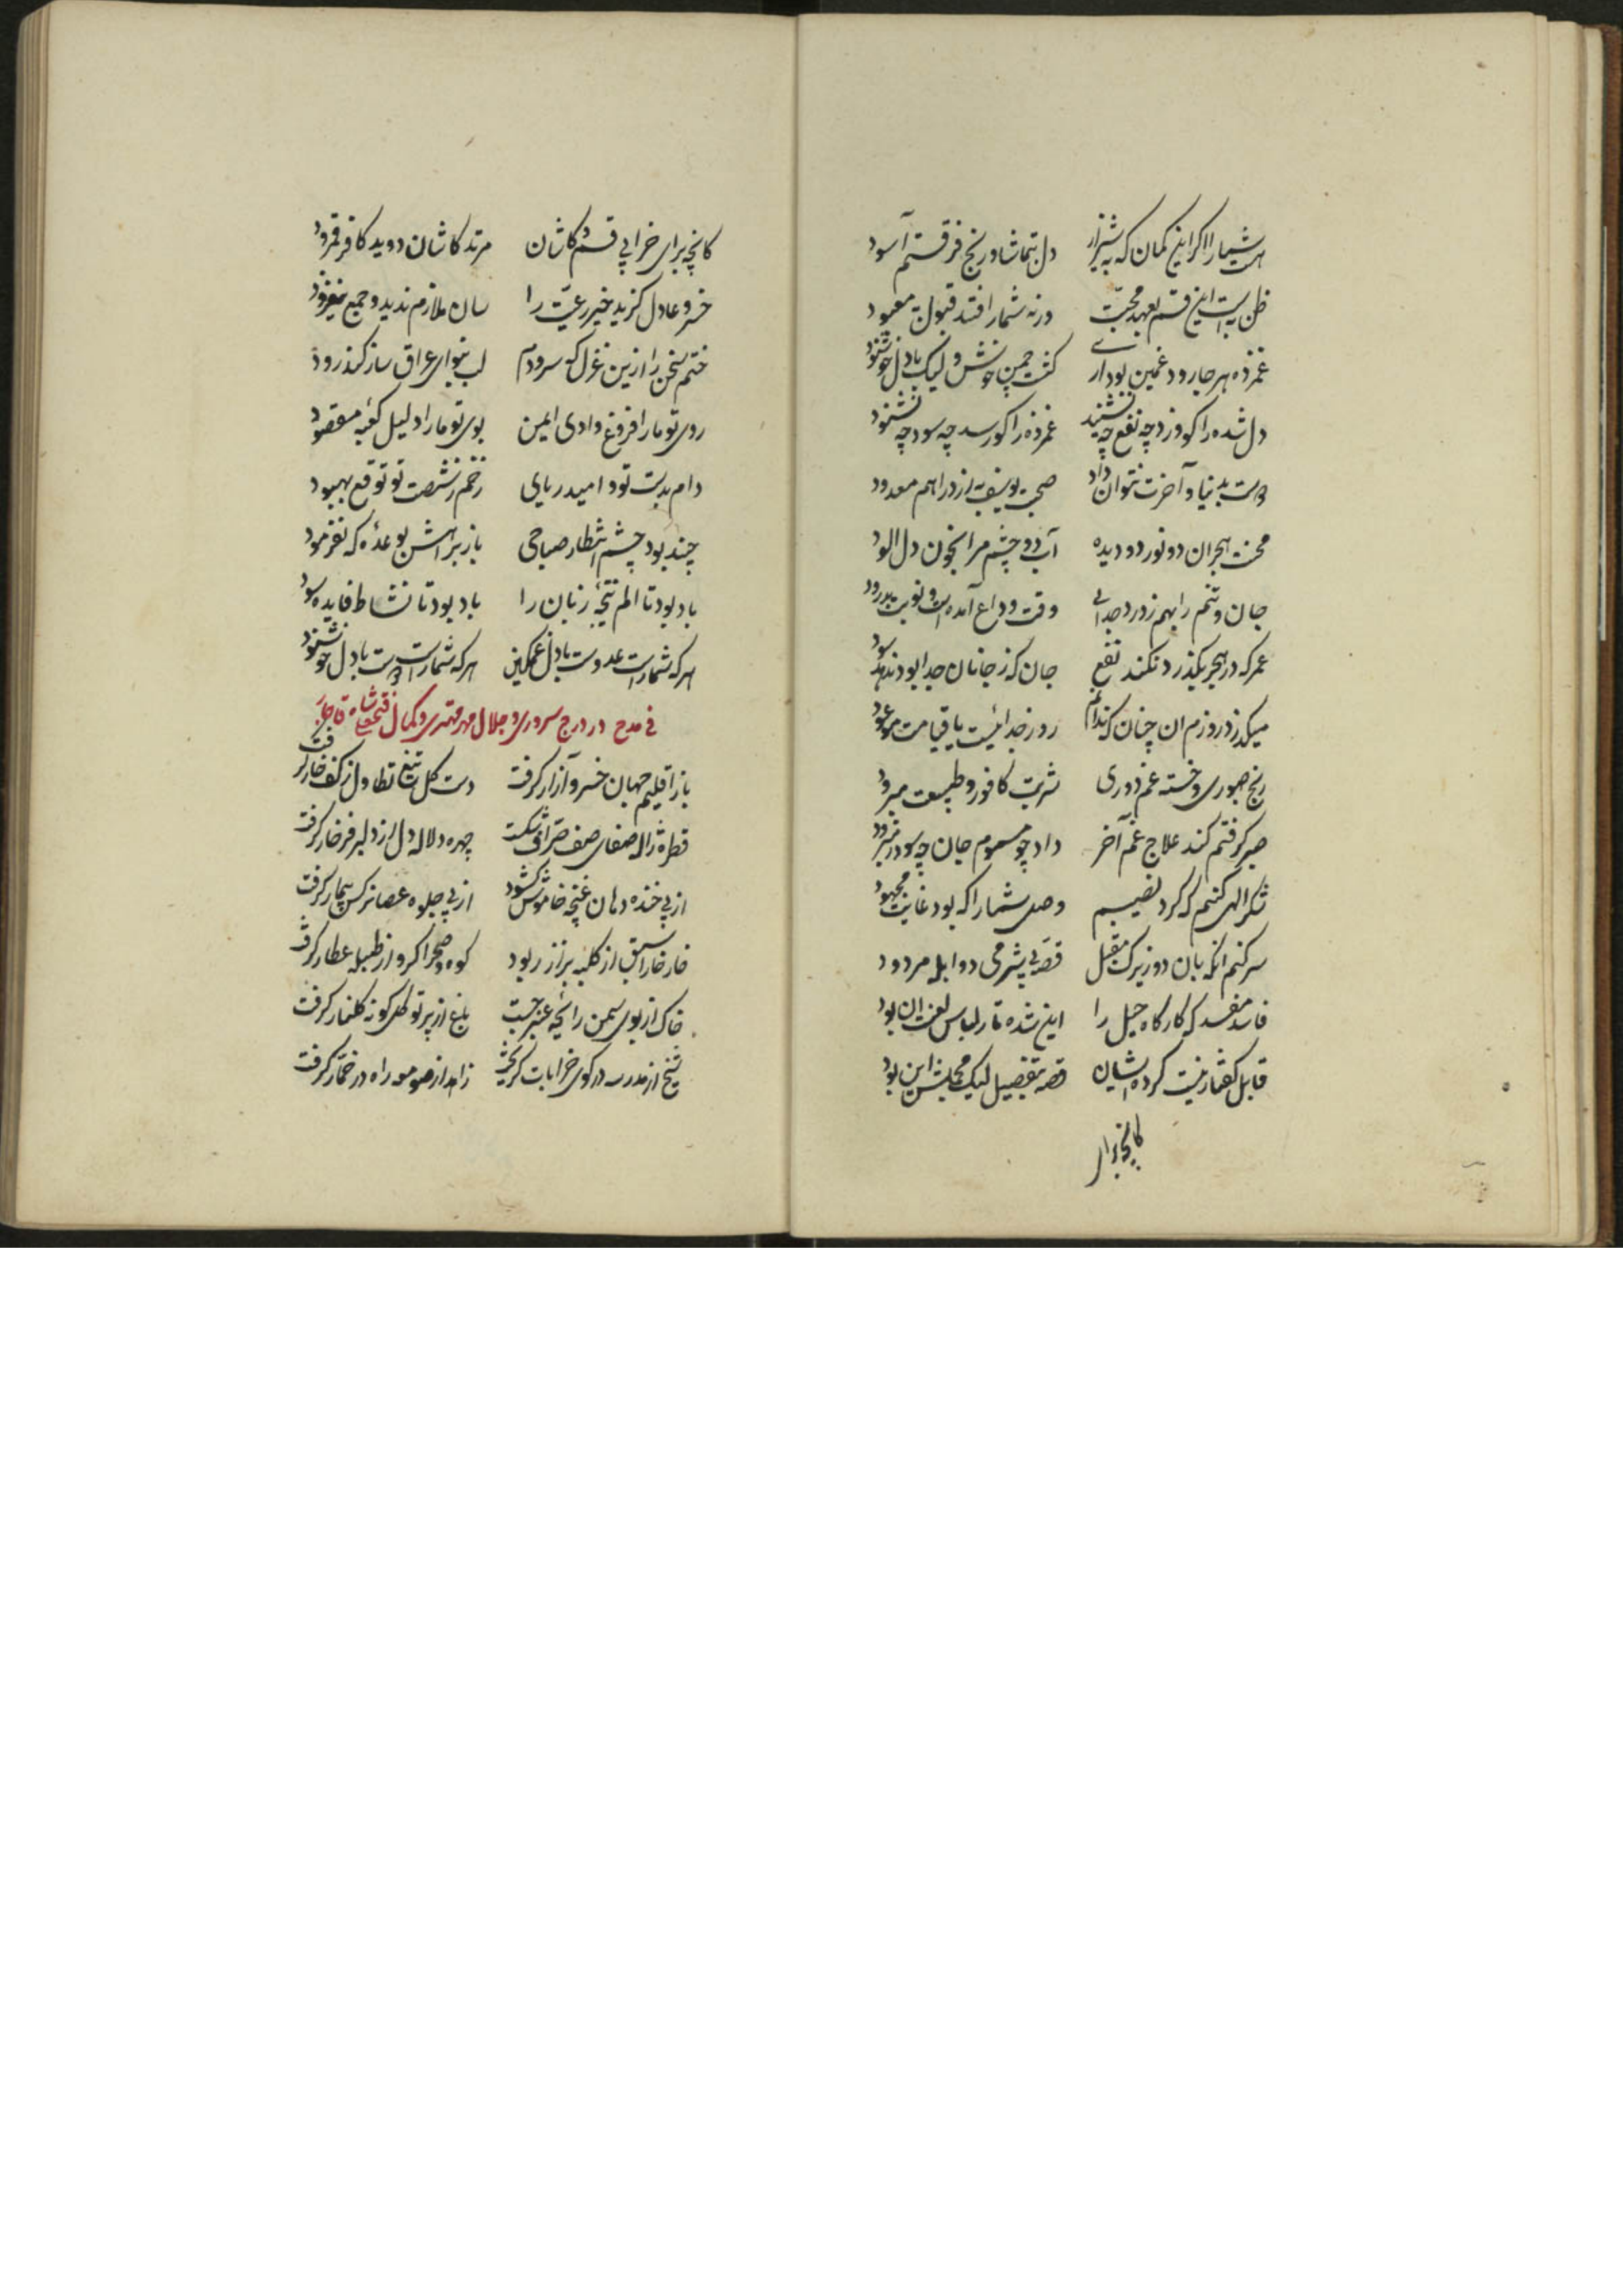 هست شما را اگر این گمان که به شیراز دل بتماشا و رنج فرقتم آسود
ظن بد است این قسم بعهد محبت ورنه شما را فتد قبول به معبود
غمزده هر جا رود غمین بود آری گشت چمن خوش ولیک با دل خوشنود
دل شده را کو وزد چه نفع چه نشنید غمزده را کو رسد چه سود چه نشنود
دوست بدنیا و آخرت نتوان داد صحبت یوسف به از دراهم معدود
محنت هجران دو نور دو دیده آب دو چشم مرا بخون دل آلود
جان و تنم را بهم ز درد جدایی وقت وداع آمده است و نوبت بدرود
عمر که در هجر بگذرد نکند نفع جان که ز جانان جدا بود ندهد سود
میگذرد روزم آن چنان که ندانم روز جدائیست یا قیامت موعود
رنج صبوری و خسته غم دوری شربت کافور و طبیعت مبرود
صبر گرفتم کند علاج غم آخر داد چو مسموم جان چه سود ز
شکر الهی کنم که کرد نصیبم وصل شما را که بود غایت مجهود
سر کنم آنگه بآن دو زیرک مقبل قصه بیشرمی دو ابله مردود
فاسد مفسد که کارگاه حیل را این شده تار لباس لعنت آن پود
قابل گفتار نیست کرده ایشان قصه بتفصیل لیک مجملش این بود
کانچه برای
کانچه برای خرابی قم و کاشان مرتد کاشان دوید کافر قمرود
خسرو عادل گزید خیر رعیت را سان ملازم ندید و جمع نیفزود
ختم سخن را ازین غزل که سرودم لب بنوای عراق ساز کند رود
روی تو ما را فروغ وادی ایمن بوی تو ما را دلیل کعبه مقصود
دام بدست تو و امید رهایی زخم ز شصت تو توقع بهبود
چند بود چشم انتظار صباحی باز براهش بوعده که نفرمود
باد بود تا الم نتیجه زیان را باد بود تا نشاط فایده سود
هر که شما راست عدوست با دل غمگین هر که شما راست دوست با دل خوشنود
فی مدح در درج سروری و جلال مهر مهتری و کمال فتحعلیشاه قاجار
باز اقلیم جهان خسرو آزار گرفت دست گل تیغ تطاول ز کف خار گرفت
قطره ژاله صفای صف شکست چهره لاله دل از دلبر فرخار گرفت
از پی خنده دهان غنچه خاموش گشود از پی جلوه عصا نرگس بیمار گرفت
خار خارا سلب از کلبه بزاز ربود کوه و صحرا گرو از طبله عطار گرفت
خاک از بوی سمن رائحه عنبر جست باغ از پرتو گل گونه گلنار گرفت
شیخ از مدرسه در کوی خرابات گریخت زاهد از صومعه راه در خمار گرفت